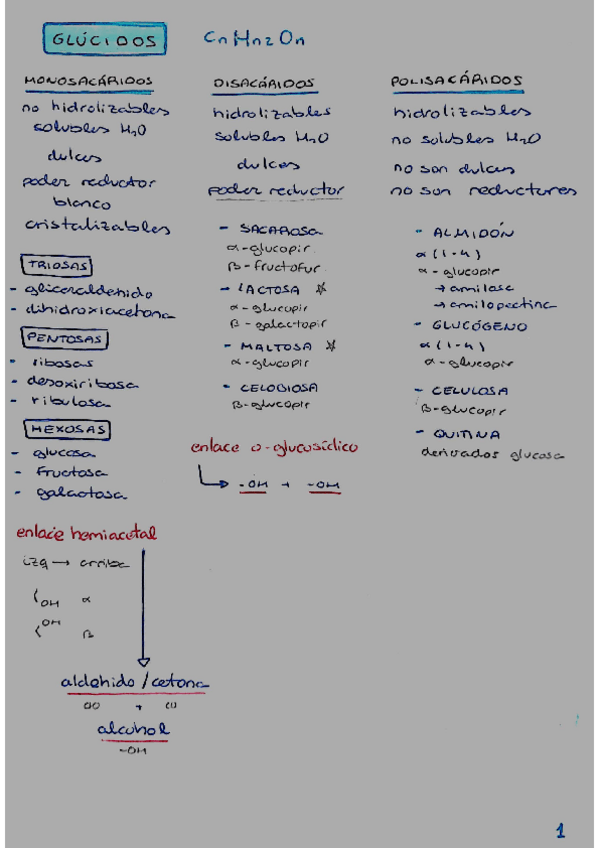 GLÚCIDOS CnHn2On
MONOSACÁRIDOS
no hidrolizables
solubles H2O
dulces
poder reductor
blanco
cristalizables
TRIOSAS
- gliceraldehido
- dihidroxiacetona
PENTOSAS
- ribosas
- desoxiribosa
- ribulosa
HEXOSAS
- glucosa
- fructosa
- galactosa
enlace hemiacetal
izq → arriba
OH α
OH β
aldehido / cetona
+
alcohol
-OH
DISACÁRIDOS
hidrolizables
solubles H2O
dulces
poder reductor
- SACAROSA
α-glucopir.
β-fructofur.
- LACTOSA ☆
α-glucopir
β-galactopir
- MALTOSA ☆
α-glucopir
- CELOBIOSA
β-glucopir
enlace o-glucosídico
↳ -OH + -OH
POLISACÁRIDOS
hidrolizables
no solubles H2O
no son dulces
no son reductores
- ALMIDÓN
α(1-4)
α-glucopir
→ amilosa
→ amilopectina
- GLUCÓGENO
α(1-4)
α-glucopir
- CELULOSA
β-glucopir
- QUITINA
derivados glucosa
1